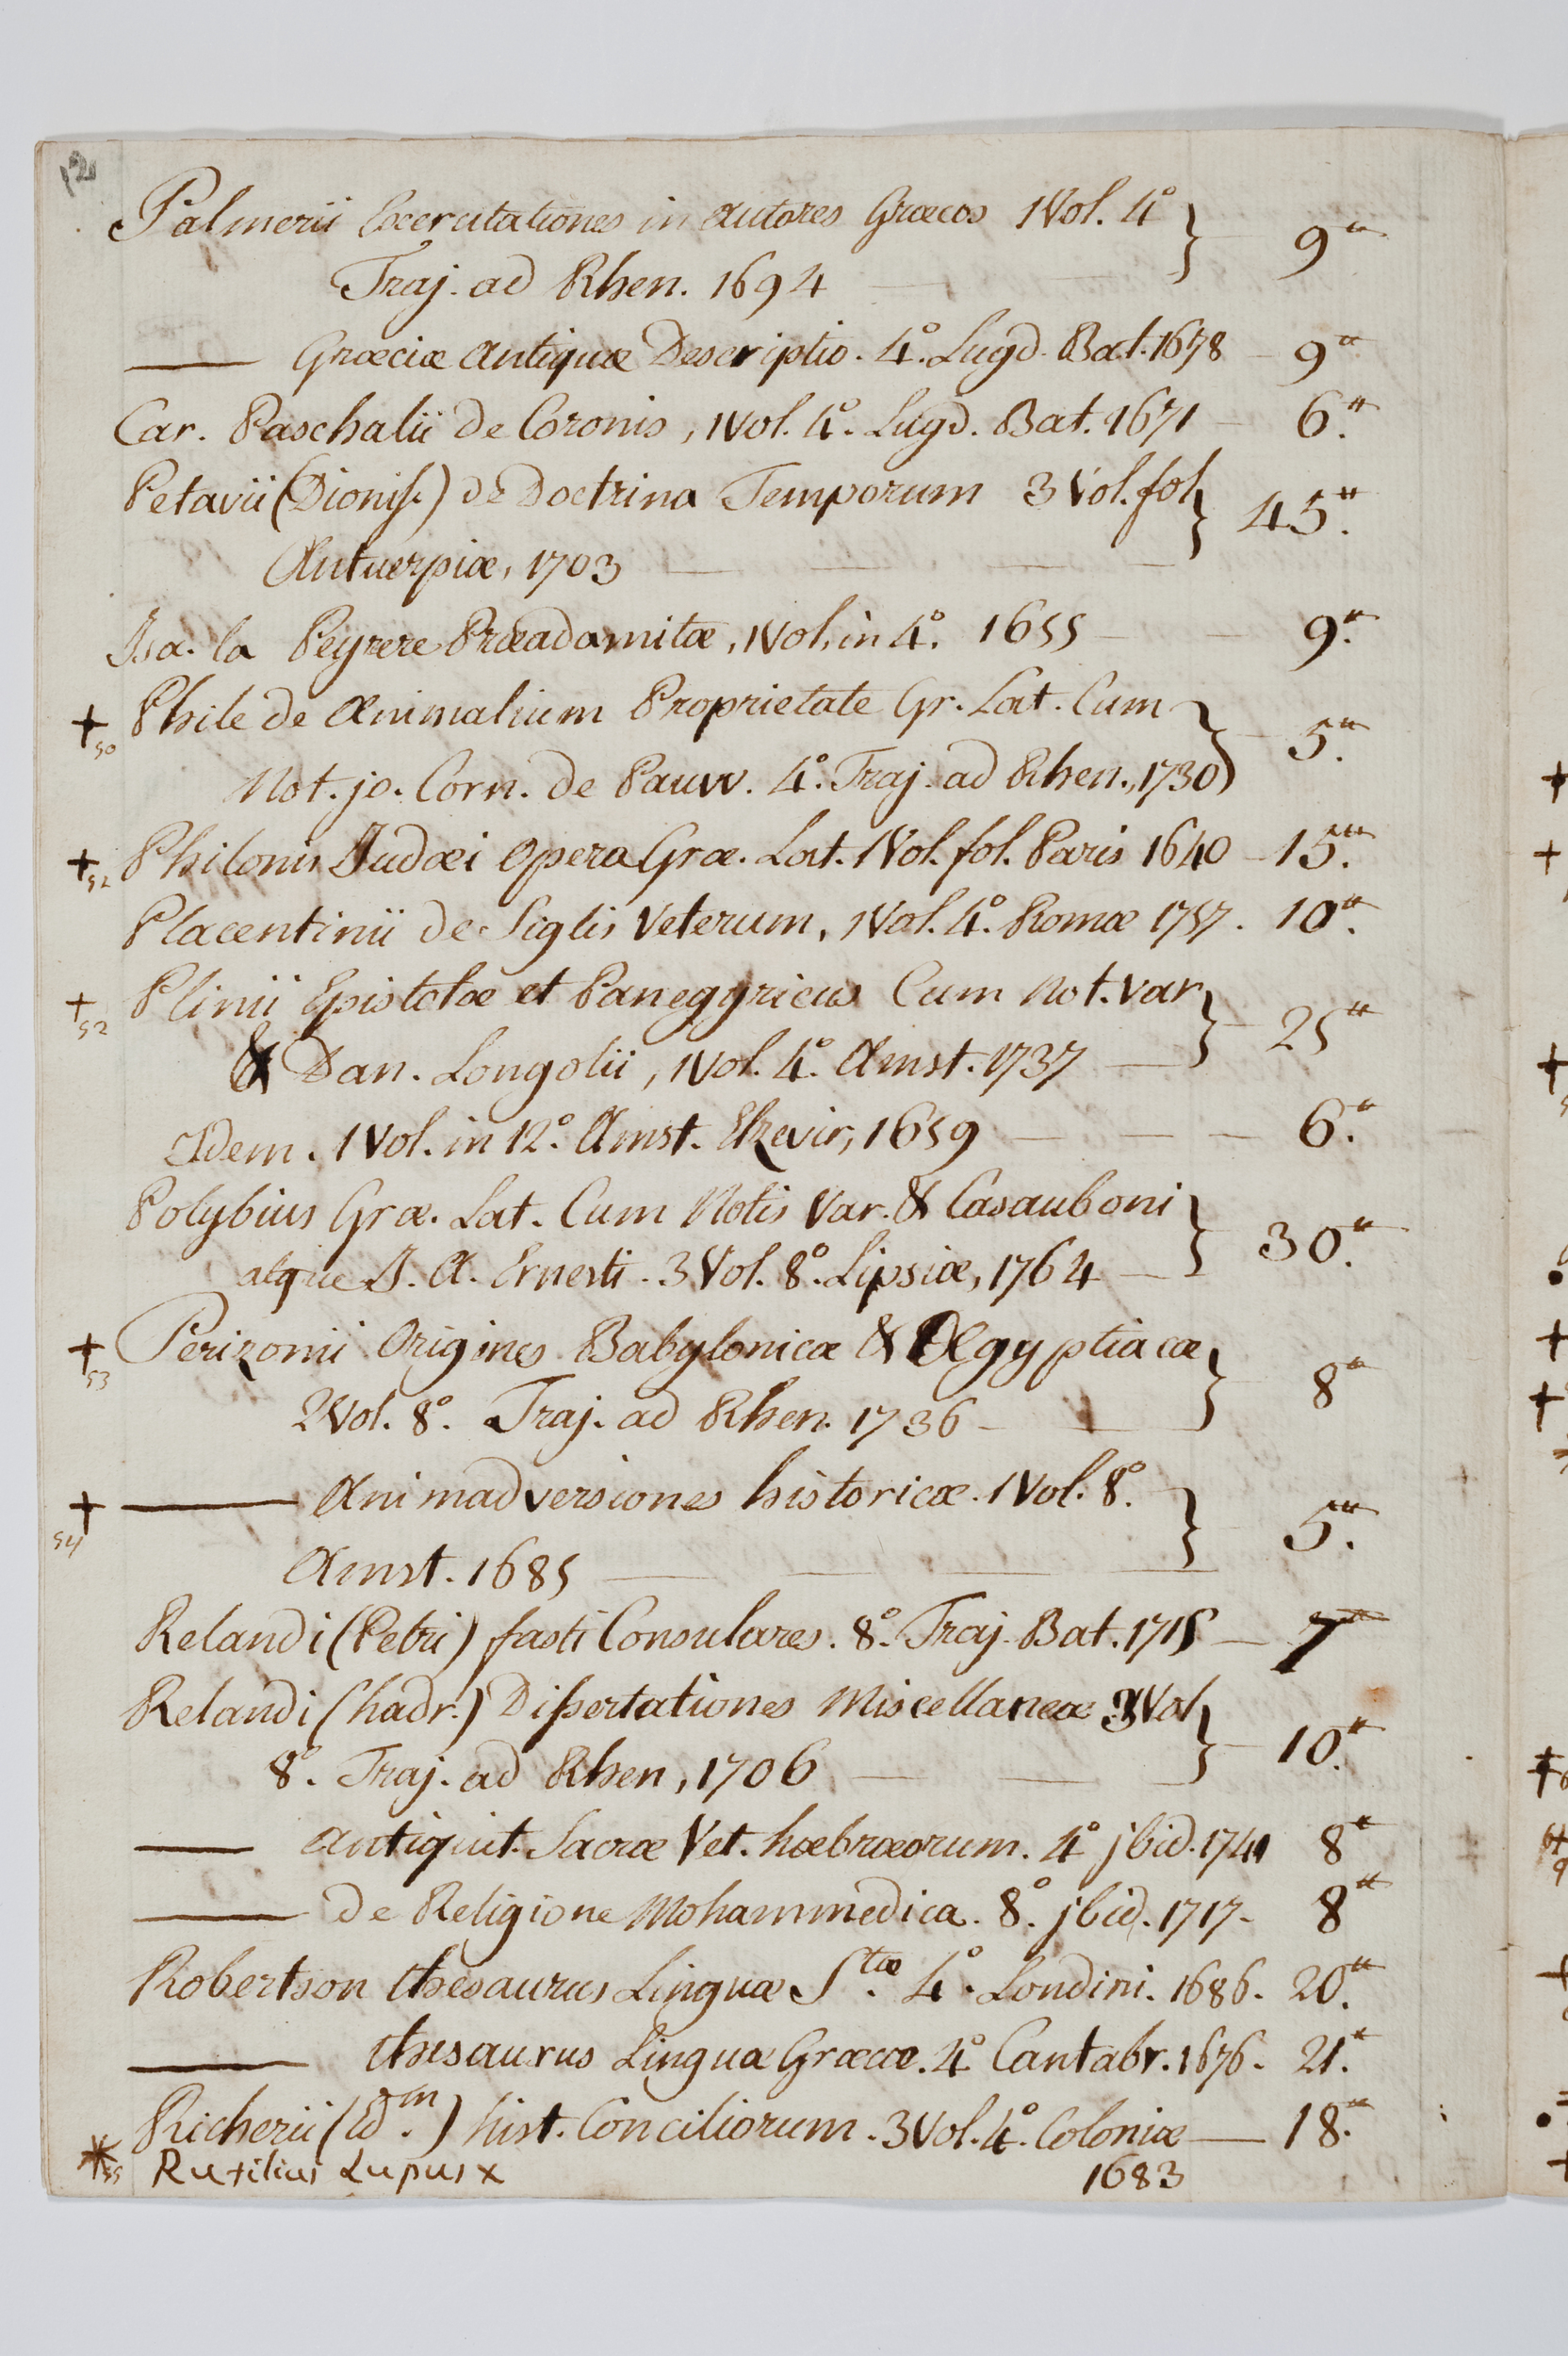 12
Palmerii Exercitationes in autores Græcos 1 Vol. 4° } 9
Traj. ad Rhen. 1694
—— Græciæ Antiquæ Descriptio. 4°. Lugd. Bat. 1678 - 9
Car. Paschalii de Coronis, 1 Vol. 4°. Lugd. Bat. 1671 - 6.
Petavii (Dionis.) de Doctrina Temporum 3 Vol. fol } 45.
Antuerpiæ, 1703
Isa. la Peyrere Præadamitæ, 1 Vol. in 4°. 1655 - 9.
+ 50 Phile de Animalium Proprietate Gr. Lat. Cum } 5.
Not. jo. Corn. de Pauw. 4°. Traj. ad Rhen., 1730
+ 52 Philonis Judæi Opera Græ. Lat. 1 Vol. fol. Paris 1640 - 15.
Placentinii de Siglis Veterum, 1 Vol. 4°. Romæ 1757. 10.
+ 52 Plinii Epistolæ et Panegyricus Cum Not. Var } 25
& Dan. Longolii, 1 Vol. 4°. Amst. 1737
Idem. 1 Vol. in 12°. Amst. Elzevir, 1659 - 6.
Polybius Græ. Lat. Cum Notis Var. & Casauboni } 30.
atque J. A. Ernesti. 3 Vol. 8°. Lipsiæ, 1764
+ 53 Perizonii Origines Babylonicæ & Ægyptiacæ } 8
2 Vol. 8°. Traj. ad Rhen. 1736
+ 54 —— Animadversiones historicæ. 1 Vol. 8°. } 5.
Amst. 1685
Relandi (Petri) fasti Consulares. 8°. Traj. Bat. 1715 - 7
Relandi (hadr.) Dissertationes Miscellaneæ 3 Vol } 10.
8°. Traj. ad Rhen, 1706
—— antiquit. Sacræ Vet. hæbræorum. 4° jbid. 1741 8
—— de Religione Mohammedica. 8°. jbid. 1717 - 8
Robertson thesaurus Linguæ S.tæ 4°. Londini. 1686. 20.
—— thesaurus Linguæ Græcæ. 4° Cantabr. 1676. 21.
Richerii (Ed.m) hist. Conciliorum. 3 Vol. 4°. Coloniæ —— 18.
1683
* 55 Rutilius Lupus x